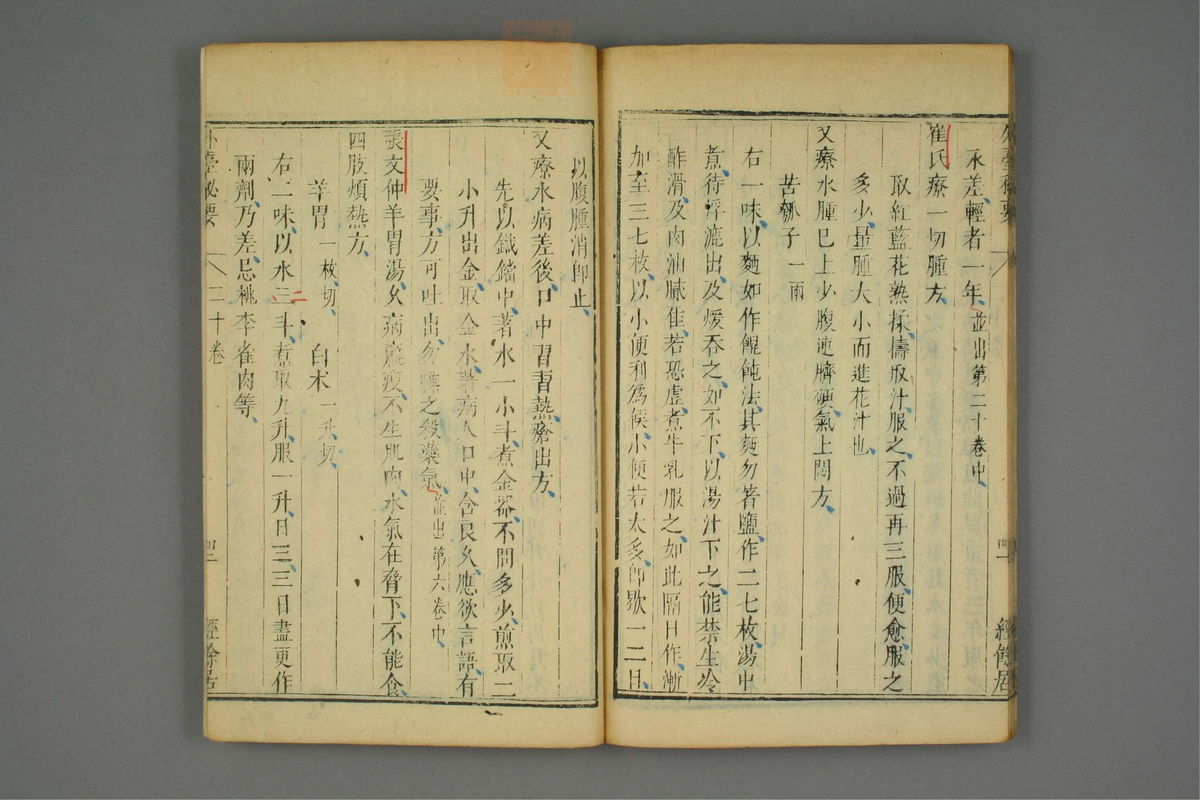 永差輕者一年並出第二十卷中
崔氏療一切腫方
取紅藍花熟揉擣取汁服之不過再三服便愈服之
多少量腫大小而進花汁也
又療水腫已上少腹連臍硬氣上悶方
苦瓠子一兩
右一味以麵如作餛飩法其麵勿著鹽作二七枚湯中
煮待浮漉出及煖吞之如不下以湯汁下之能禁生冷
酢滑及肉油膩佳若恐虛煮牛乳服之如此隔日作漸
加至三七枚以小便利爲候小便若太多即歇一二日
以腹腫消即止
又療水病差後口中習習熱瘡出方
先以鐵鐺中著水一小斗煮金器不問多少煎取二
小升出金取金水著病人口中含良久應欲言語有
要事方可吐出勿嚥之殺藥氣並出第六卷中
張文仲羊胃湯久病羸瘦不生肌肉水氣在脅下不能食
四肢煩熱方
羊胃一枚切 白朮一升切
右二味以水二斗煮取九升服一升日三三日盡更作
兩劑乃差忌桃李雀肉等
外臺秘要 二十卷 四一 經餘居